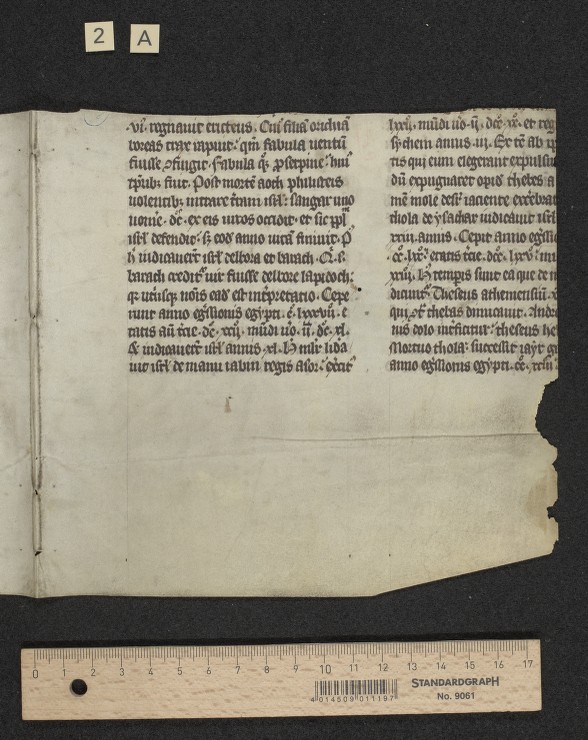 2 A
·vi· regnauit ericteus. Cui' filiā oriduā
boreas trax rapuit. qm̄ fabula uentū
fuisse ↄfingit. Fabula q; ꝓserpine hui'
tꝑib; fuit. Post mortē aoth philisteis
uolentib; intrare t̄ram isrl̄. sangar uno
uomē. dc̄. ex eis uiros occidit. et sic ppl̄m
isrl̄ defendit. sꝫ eod' anno uitā finiuit. P
h' iudicauer̄t isrl̄ delbora et barach.
barach credit' uir fuisse delbore lapidoth.
q; utiusq; nōis ead' est int̄pretatio. Cepe
runt anno egressionis egypti. c̄. lxxxvii. e
tatis au t̄cie. dc̄. xcij. mūdi uo. ii. dc̄. xl.
& iudicauer̄t isrl̄ annis .xl. H' mlr̄ liba
uit isrl̄ de manu iabin regis asor.
lxxij. mūdi uo. ij. dcc̄. xx. et reg
sychem annis .iij. Er̄t
tis qui eum elegerant expulsus
dū expugnaret opid' thebes a
mē mole desr̄ iaciente
thola de ysachar iudicauit isrl̄
xxiii. annis. Cepit anno egressio
cc̄. lxx. etatis t̄cie. dcc̄. lxxv. m
xxiij. H' temp̄is sunt ea que de m
dicunt'. Theseus atheniensiū
qui thebas dimicauit. Andro
ius dolo inficitur. theseus he
Mortuo thola. successit iayr
anno egressionis egypti. cc̄. xciii.
0 1 2 3 4 5 6 7 8 9 10 11 12 13 14 15 16 17
4 014509 011197
STANDARDGRAPH
No. 9061